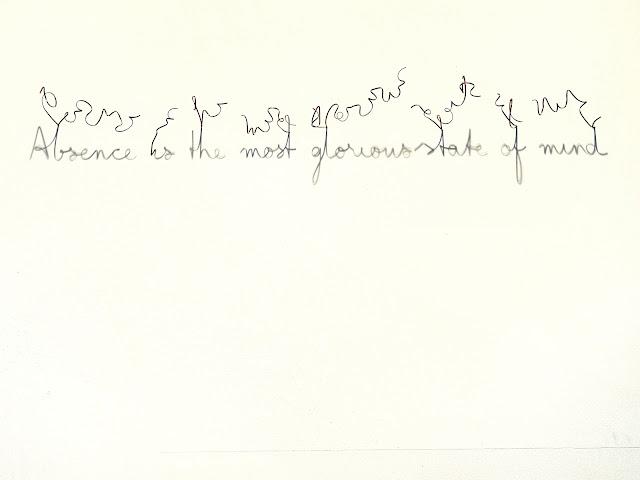 Absence is the most glorious state of mind